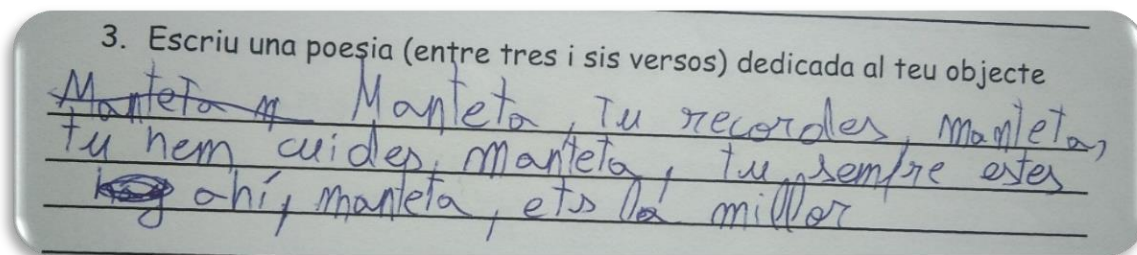 3. Escriu una poesia (entre tres i sis versos) dedicada al teu objecte
Manteta M Manteta, Tu recordes, manteta,
tu hem cuides, manteta, tu sempre estes
ahí, manteta, ets la millor